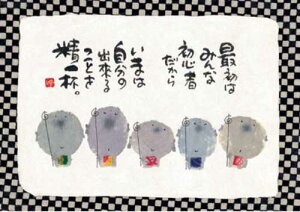 最初は
みんな
初心者
だから
いまは
自分の
出来る
ことを
精一杯。